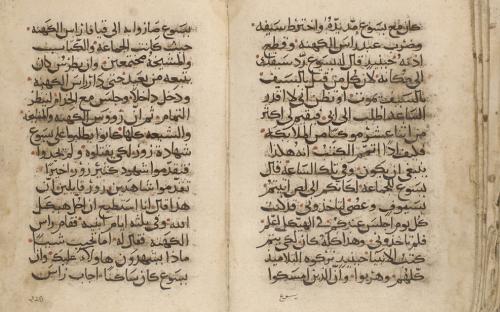 كان مع يسوع مد يده واخترط سيفه
وضرب عبد راس الكهنه وقطع
اذنه حينيذ قال له يسوع رد سيفك
الى مكانه لان كل من قتل بالسيف
بالسيف يموت او تظن اني لا اقدر
الساعه اطلب الى ابي فيقيم لي اكثر
من اثنا عشر موكبا من الملايكه
فكيف اذا تتم الكتب انه هكذا
ينبغي ان يكون وفي تلك الساعه قال
يسوع للجماعه كانكم الى لص اتيتم
بسيوف وعصي لتاخذوني كنت
كل يوم اجلس عندكم في الهيكل اعلم
فلم تاخذوني وهذا كله كان لكي يتم
كتب الانبيا حينيذ تركوه التلاميذ
كلهم وهربوا وان الذين امسكوا
يسوع
بيسوع صاروا به الى قيافا راس الكهنه
حيث كانت الجماعه والكتاب
والمشيخه مجتمعين وان بطرس كان
يتبعه من بعيد حتى دار راس الكهنه
ودخل داخلا وجلس مع الخدام لينظر
التمام وان رووس الكهنه والمشيخه
والشيعه كلها كانوا يطلبوا على يسوع
شهادة زور لكي يقتلوه ولم يجدوا
فتقدموا شهود كثير زور واخيرا
تقدموا شاهدين زور قايلين ان
هذا قال انا استطيع ان احل هيكل
الله وفي ثلثه ايام ابنيه فقام راس
الكهنه فقال له اما تجيب شيا
ماذا يشهدون هاولاء عليك وان
يسوع كان ساكتا اجاب راس